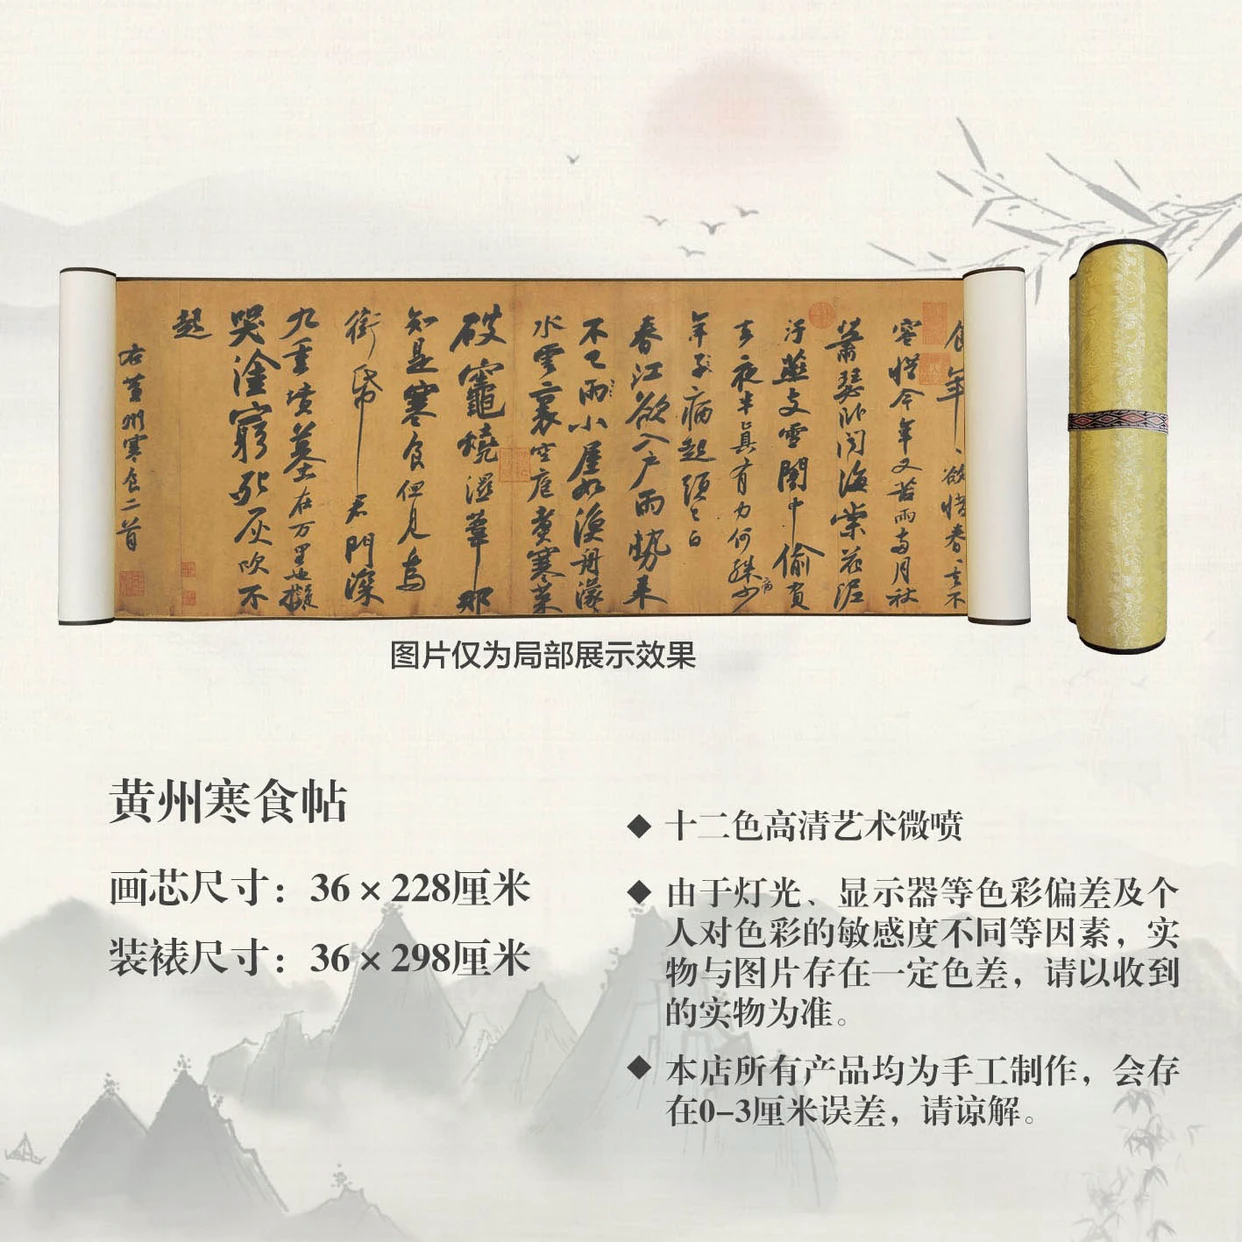 食年年欲惜春春去不
容惜今年又苦雨兩月秋
蕭瑟卧聞海棠花泥
汙燕支雪闇中偷負
去夜半真有力何殊少
年子病起頭已白
春江欲入户雨勢来
不已雨小屋如漁舟濛
水雲裏空庖煮寒菜
破竈燒濕葦那
知是寒食但見烏
銜帋君門深
九重墳墓在万里也擬
哭塗窮死灰吹不
起
右黄州寒食二首
图片仅为局部展示效果
黄州寒食帖
画芯尺寸：36×228厘米
装裱尺寸：36×298厘米
◆ 十二色高清艺术微喷
◆ 由于灯光、显示器等色彩偏差及个
人对色彩的敏感度不同等因素，实
物与图片存在一定色差，请以收到
的实物为准。
◆ 本店所有产品均为手工制作，会存
在0-3厘米误差，请谅解。